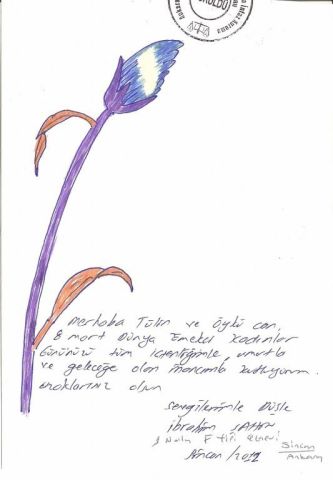 GÖRÜLDÜ
Merhaba Tülin ve Öykü can,
8 mart Dünya Emekçi Kadınlar
Gününüzü tüm içtenliğimle, umutla
ve geleceğe olan inancımla kutluyorum.
olsun
Sevgilerimle Düşle
İbrahim ŞAHİN
1 Nolu F tipi
Sincan / Ankara
Sincan/2012